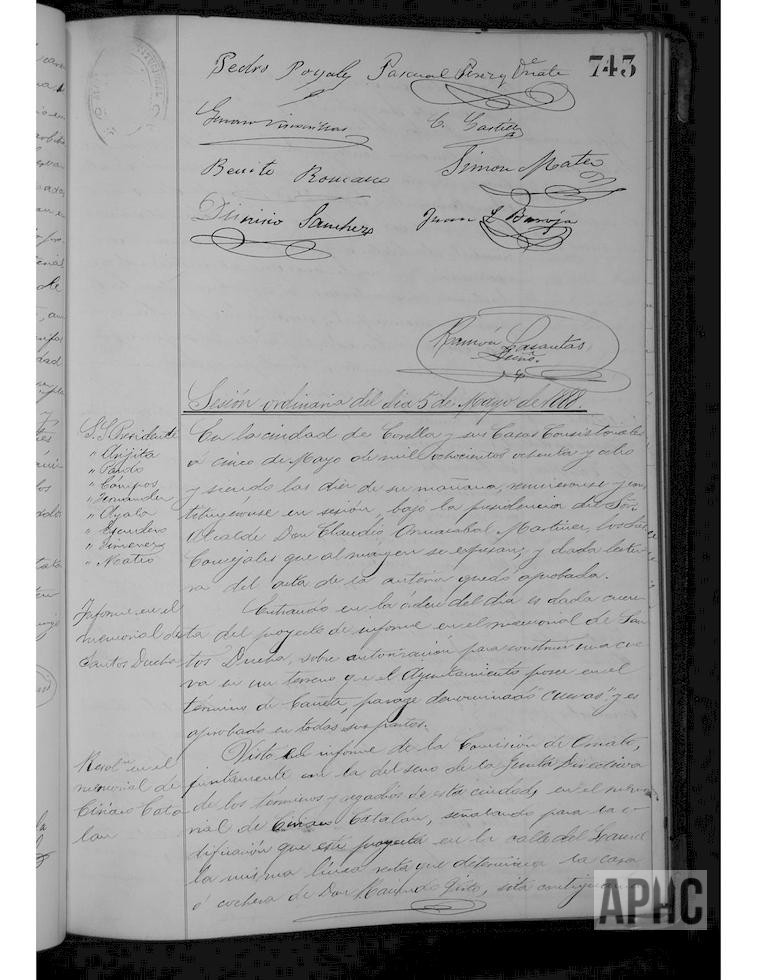 743
Pedro Poyales Pascual Perez y Oñate
C. Castillo
Benito Romano
Simon Mateo
Dionisio Sanchez
Juan L Baroja
Ramón Lasantas
Srio.
Sesión ordinaria del dia 5 de Mayo de 1888.
S. S. Presidente
" Arijita
" Pardo
" Cámpos
" Fernandez
" Ayala
" Escudero
" Jimenez
" Mateo
En la ciudad de Corella y sus Casas Consistoriales
á cinco de Mayo de mil ochocientos ochenta y ocho
y siendo las diez de su mañana, reunieronse y cons
tituyéronse en sesión, bajo la presidencia del Señor
Alcalde Don Claudio Martinez, los Sres
Concejales que al margen se expresan; y dada lectu
ra del acta de la anterior quedó aprobada.
Informe en el
memorial de
Santos Ducha
Entrando en la órden del dia es dada cuen
ta del proyecto de informe en el memorial de San
tos Ducha, sobre autorización para construir una cue
va en un terreno que el Ayuntamiento posee en el
término de Cañeta, paraje denominado "Cuevas" y es
aprobado en todas sus partes.
Resolón en el
memorial de
Ciriaco Cata
lan
Visto el informe de la Comisión de Ornato,
juntamente con la del seno de la Junta Directiva
de los términos y regadios de esta ciudad, en el memo
rial de Ciriaco Catalan, señalando para la e
dificación que este proyecta en la calle del
la misma línea recta que determina la casa
ó cochera de Don Raimundo, sita contigua
APHC